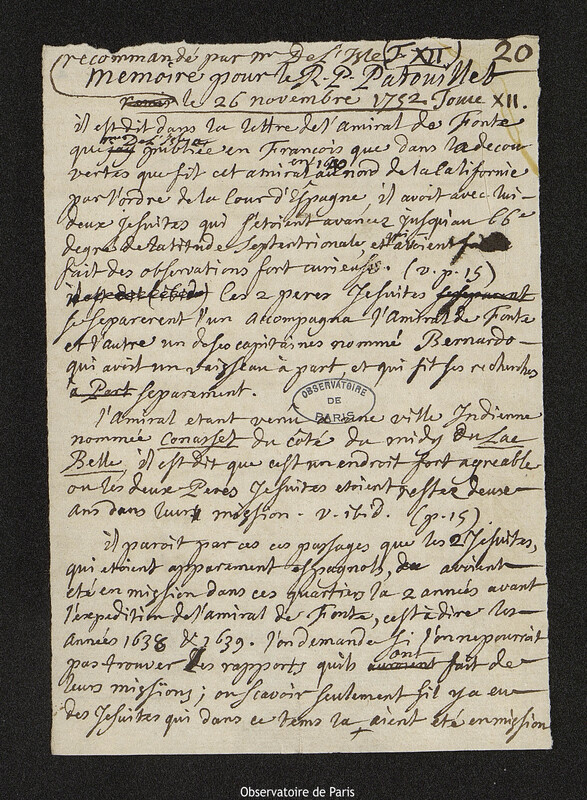 recommandé par mr De l'Isle (T XII) 20
memoire pour le R. P. Patouillet
le 26 novembre 1752. Tome XII.
il est dit dans la lettre de l'amiral de Fonte
que publiée en François que dans la decou
vertes que fit cet amiral en 1640 au nord de la Californie
par l'ordre de la Cour d'Espagne, il avoit avec lui
deux Jesuites qui s'etoient avancez jusqu'au 66e
degré de latitude septentrionale, et avoient
fait des observations fort curieuses. (v. p. 15)
les 2 peres Jesuites
se separerent l'un accompagna l'amiral de Fonte
et l'autre un de ses capitaines nommé Bernardo
qui avoit un vaisseau à part et qui fit ses recherches
à Part separement.
OBSERVATOIRE DE PARIS
l'amiral etant venu a une ville Indienne
nommée Conasset du côté du midy du Lac
Belle, il est dit que c'est un endroit fort agreable
ou les deux Peres Jesuites etoient restez deux
ans dans leur mission. v. ibid. (p. 15)
il paroit par ces passages que les 2 Jesuites,
qui etoient apparement espagnols, avoient
eté en mission dans ces quartiers la 2 années avant
l'expedition de l'amiral de Fonte, c'est à dire les
années 1638 & 1639. l'on demande si l'on ne pourroit
pas trouver les rapports qu'ils ont fait de
leurs missions; ou scavoir seulement s'il y a eu
des Jesuites qui dans ce tems la aient eté en mission
Observatoire de Paris